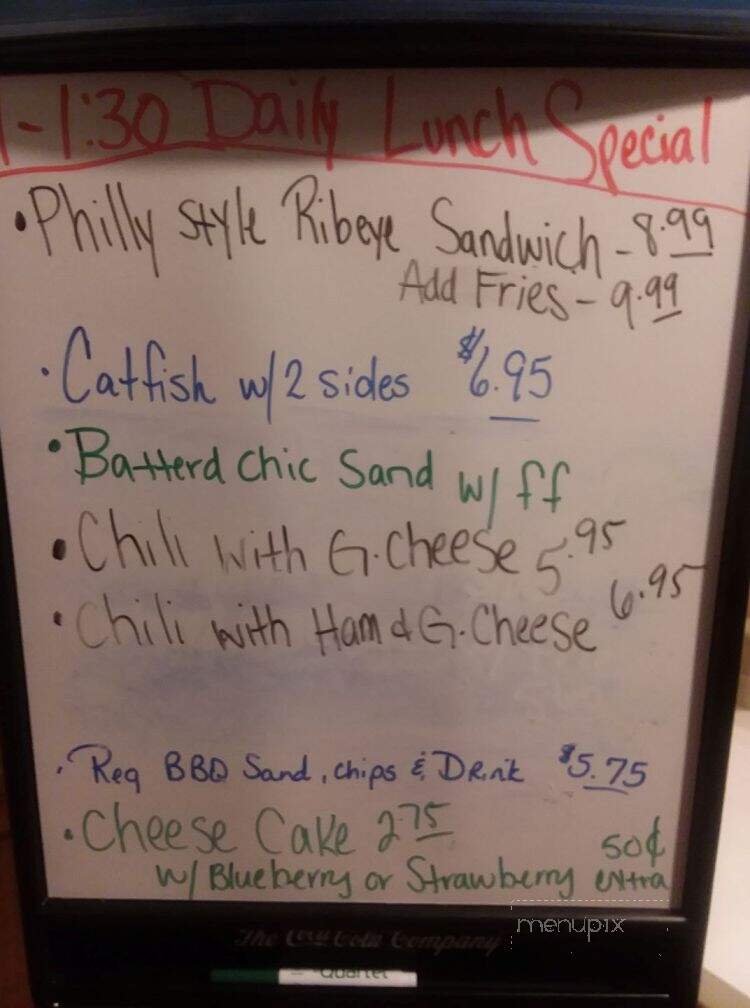 1-1:30 Daily Lunch Special
• Philly Style Ribeye Sandwich - 8.99
Add Fries - 9.99
• Catfish w/2 sides $6.95
• Batterd Chic Sand w/ ff
• Chili with G.Cheese 5.95
• Chili with Ham & G.Cheese 6.95
• Reg BBQ Sand, chips & Drink $5.75
• Cheese Cake 2.75
w/ Blueberry or Strawberry 50¢ extra
The Coca-Cola Company
Quartet
menupix